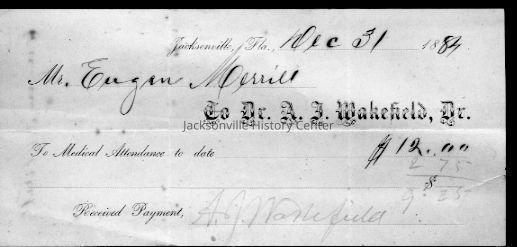 Jacksonville, Fla., Dec 31 1884
Mr. Eugen Merrill
To Dr. A. J. Wakefield, Dr.
Jacksonville History Center
To Medical Attendance to date $12.00
2.75
9.25
Received Payment, A J Wakefield